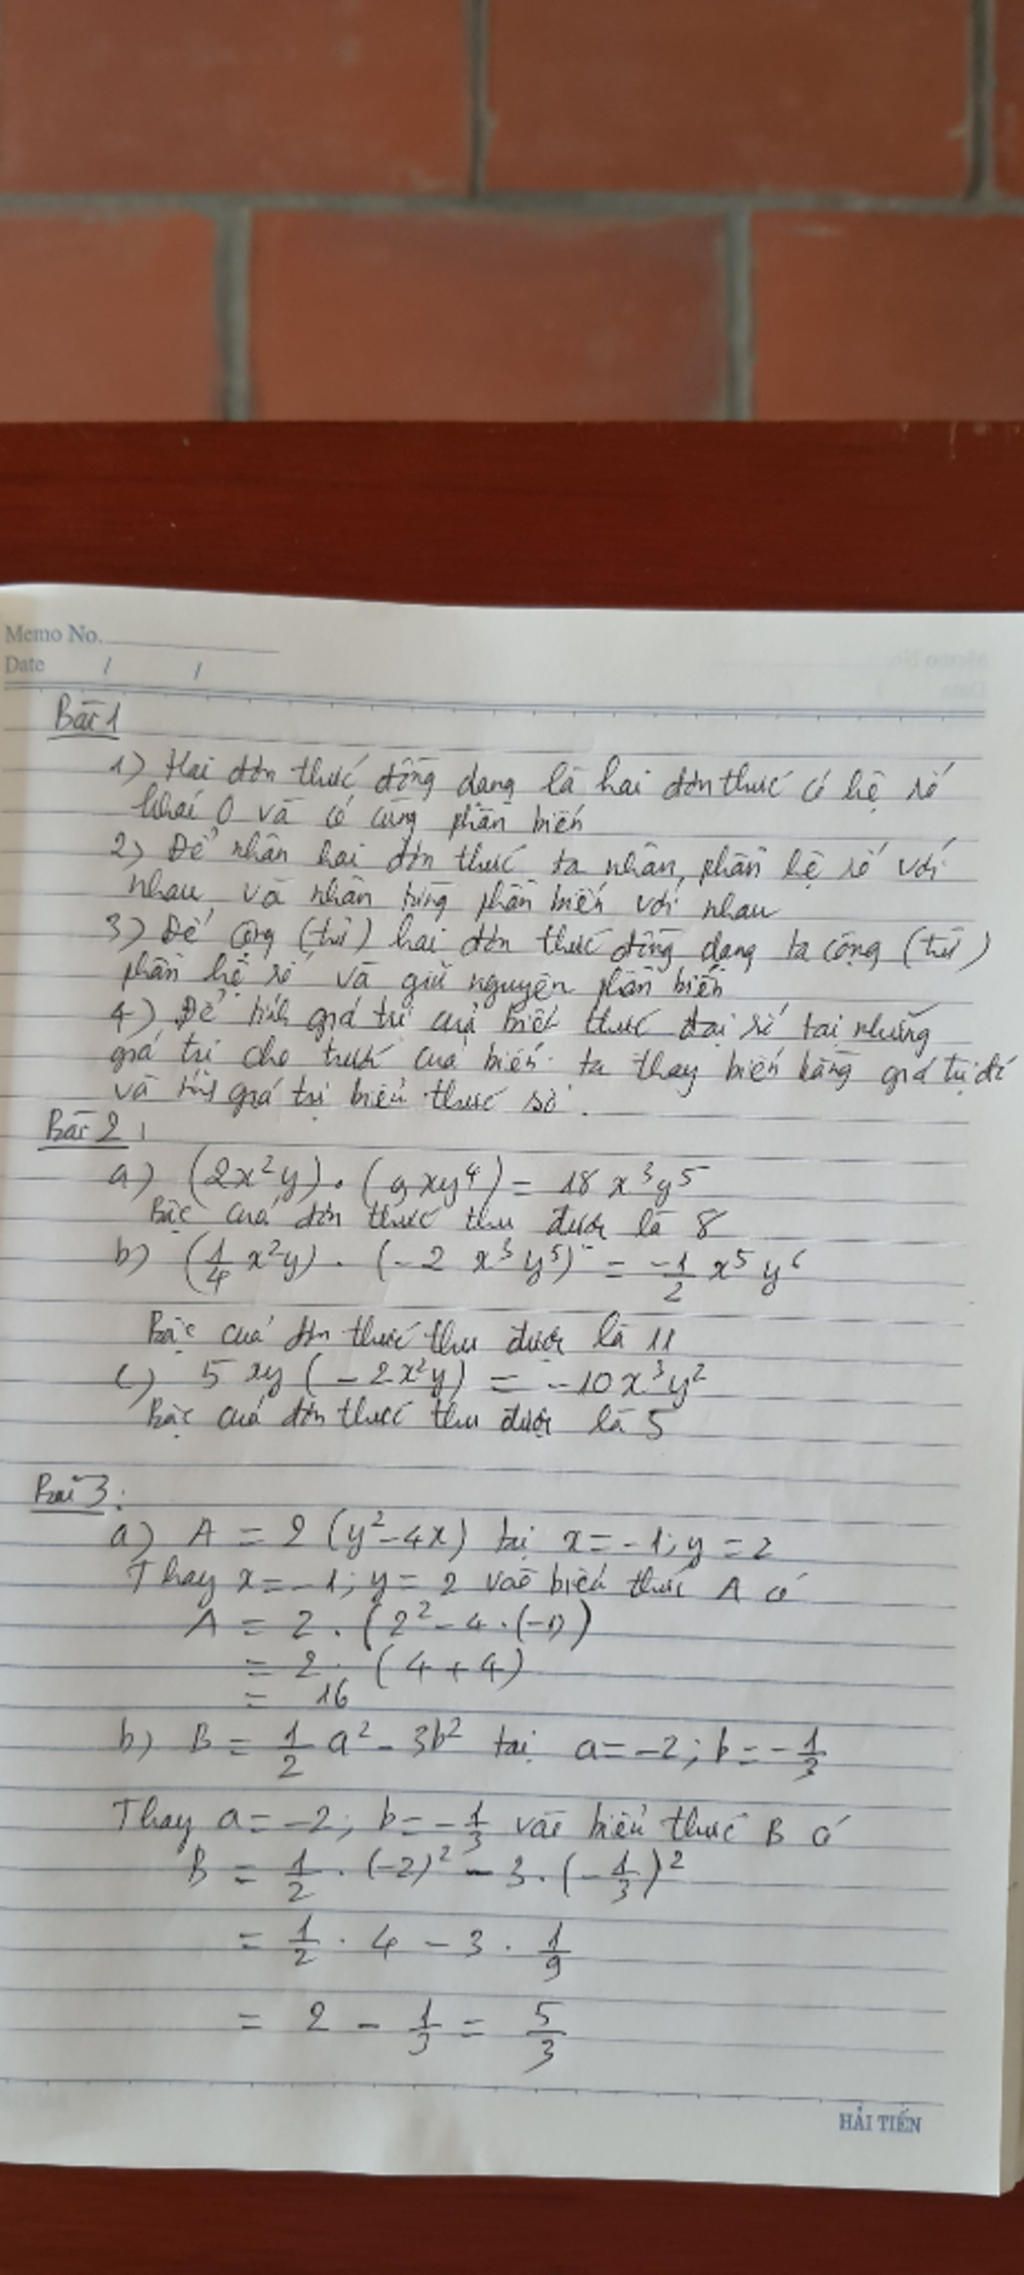 Memo No.
Date / /
Bài 1
1) Hai đơn thức đồng dạng là hai đơn thức có hệ số
khác 0 và có cùng phần biến
2) Để nhân hai đơn thức ta nhân phần hệ số với
nhau và nhân từng phần biến với nhau
3) Để cộng (trừ) hai đơn thức đồng dạng ta cộng (trừ)
phần hệ số và giữ nguyên phần biến
4) Để tính giá trị của biểu thức đại số tại những
giá trị cho trước của biến ta thay biến bằng giá trị đó
và tính giá trị biểu thức số.
Bài 2:
a) (2x²y) . (9xy⁴) = 18x³y⁵
Bậc của đơn thức thu được là 8
b) (1/4 x²y) . (-2 x³y⁵) = -1/2 x⁵y⁶
Bậc của đơn thức thu được là 11
c) 5xy (-2x²y) = -10x³y²
Bậc của đơn thức thu được là 5
Bài 3:
a) A = 2 (y² - 4x) tại x = -1; y = 2
Thay x = -1; y = 2 vào biểu thức A có
A = 2 . (2² - 4 . (-1))
= 2 . (4 + 4)
= 16
b) B = 1/2 a² - 3b² tại a = -2; b = -1/3
Thay a = -2; b = -1/3 vào biểu thức B có
B = 1/2 . (-2)² - 3 . (-1/3)²
= 1/2 . 4 - 3 . 1/9
= 2 - 1/3 = 5/3
HẢI TIẾN